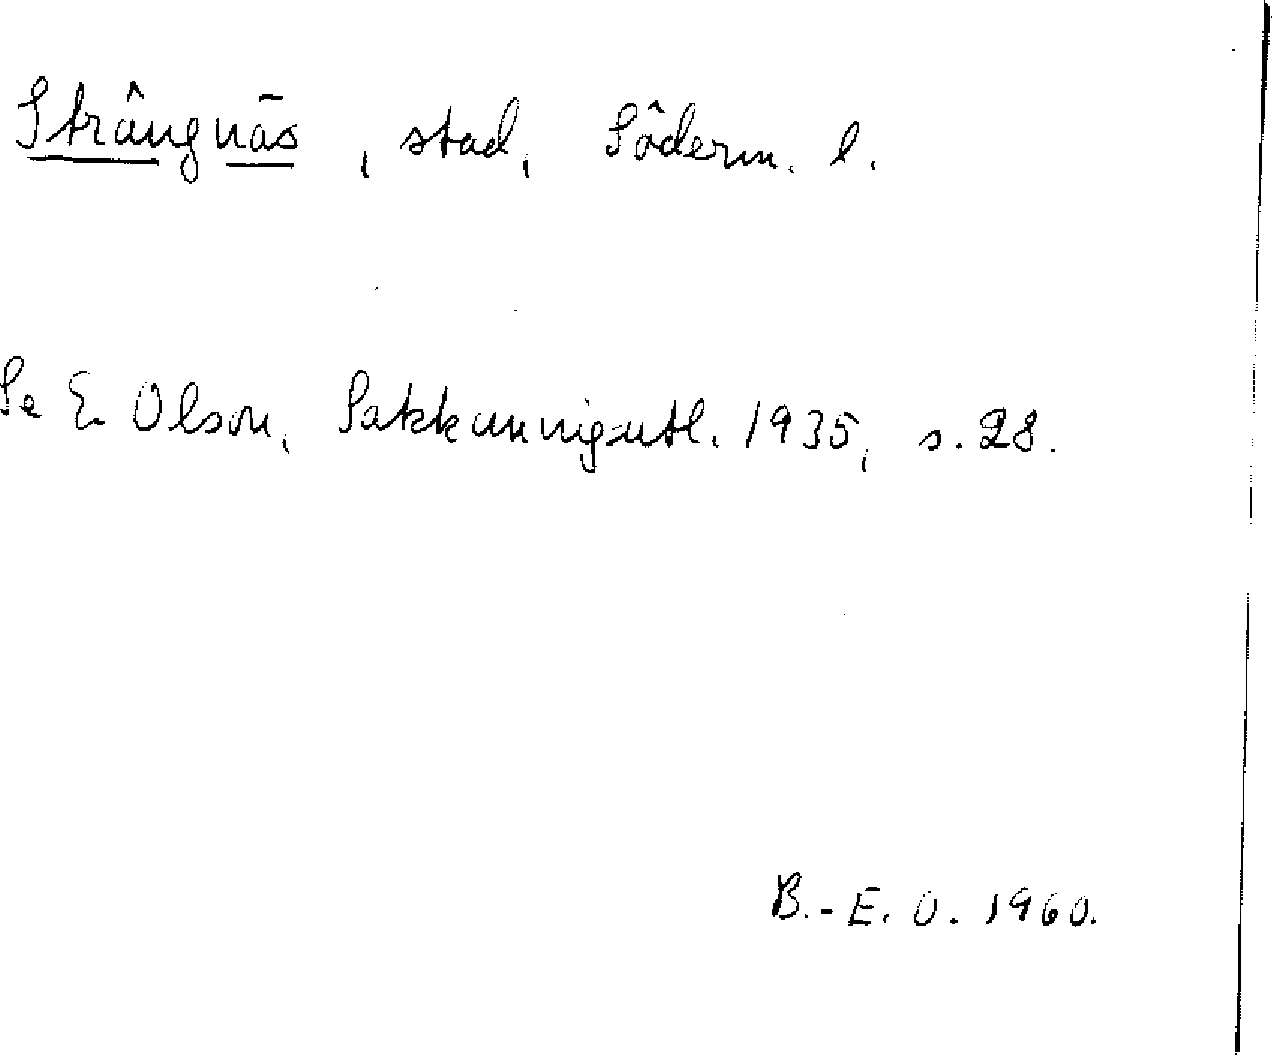 Strängnäs, stad, Söderm. l.
Se E. Olson, Sakkunnigutl. 1935, s. 28.
B.-E. O. 1960.